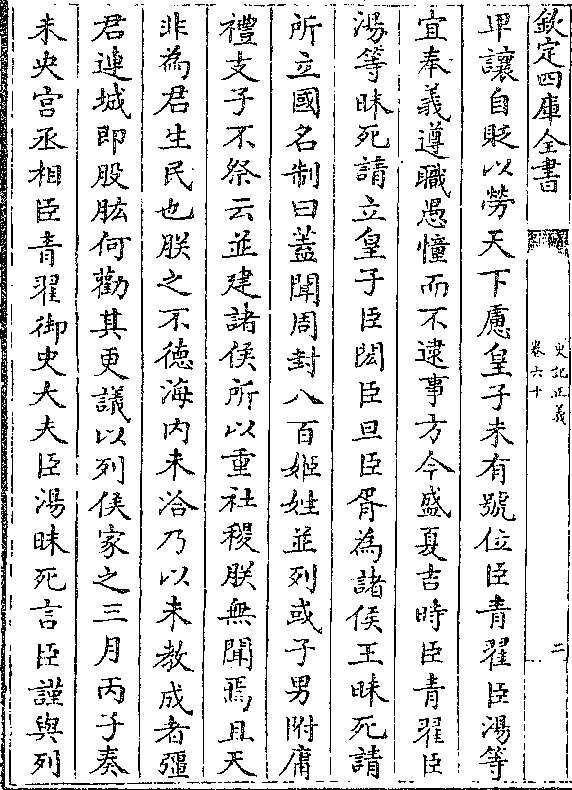 欽定四庫全書
史記正義
卷六十
二
卑讓自貶以勞天下慮皇子未有號位臣青翟臣湯等
宜奉義遵職愚憧而不逮事方今盛夏吉時臣青翟臣
湯等昧死請立皇子臣閎臣旦臣胥為諸侯王昧死請
所立國名制曰蓋聞周封八百姬姓並列或子男附庸
禮支子不祭云並建諸侯所以重社稷朕無聞焉且天
非為君生民也朕之不德海內未洽乃以未教成者彊
君連城即股肱何勸其更議以列侯家之三月丙子奏
未央宮丞相臣青翟御史大夫臣湯昧死言臣謹與列